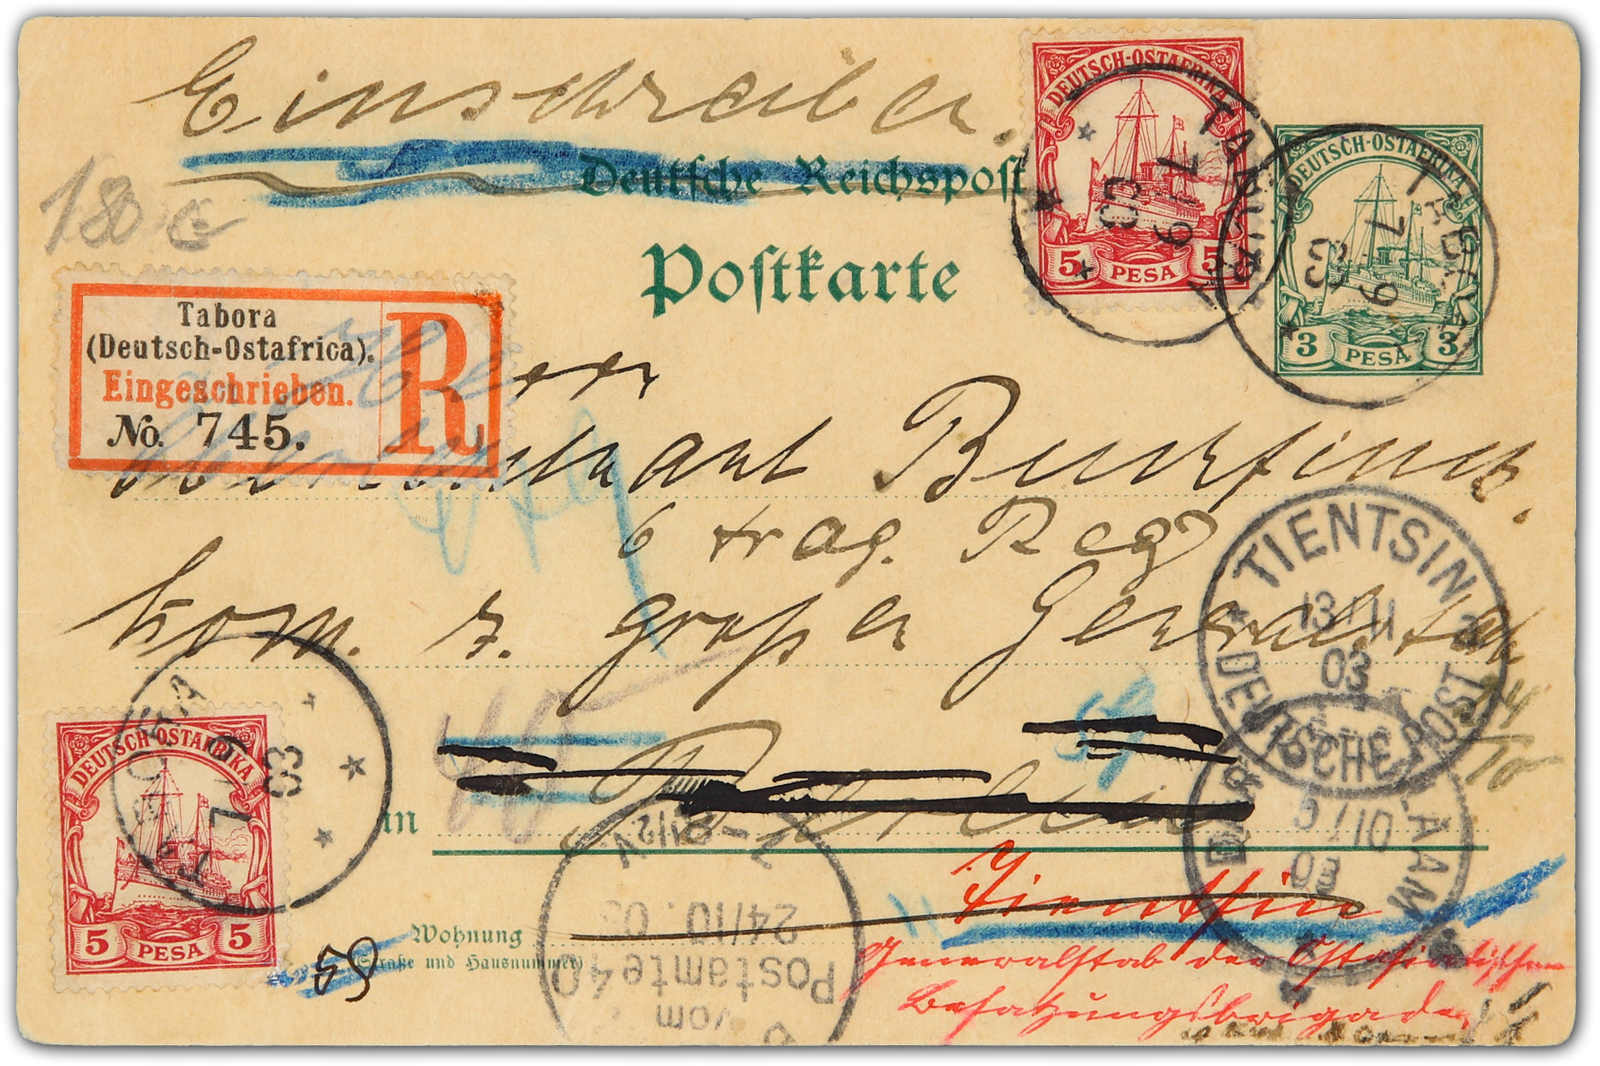 Einschreiben.
Deutsche Reichspost
Postkarte
DEUTSCH-OSTAFRIKA
5 PESA 5
TABORA
7/9
03
DEUTSCH-OSTAFRIKA
3 PESA 3
TABORA
7/9
03
180 €
Tabora
(Deutsch-Ostafrica).
Eingeschrieben.
No. 745.
R
6 Drag. Reg
kom. z. großen Generalstab
TIENTSIN
13/11
03
DEUTSCHE POST
24/10
DEUTSCH-OSTAFRIKA
5 PESA 5
TABORA
7/9
03
in Berlin
DAR-ES-SALAAM
9/10
03
Tientsin
Generalstab der Ostasiatischen
Besatzungsbrigade
Wohnung
(Straße und Hausnummer)
8-9 1/2V
24/10.03
Postamte 40
vom